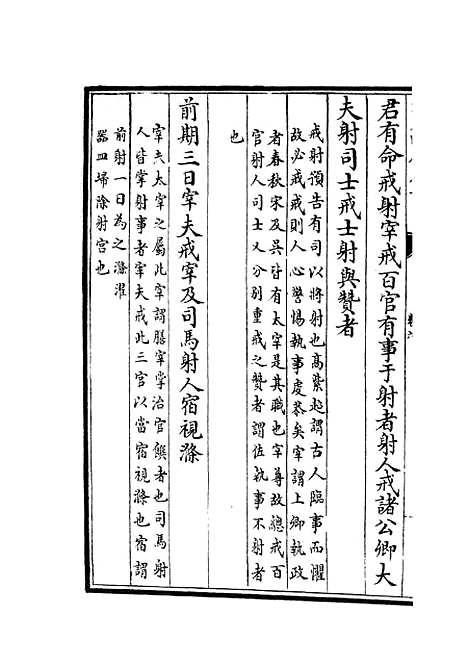 君有命戒射宰戒百官有事于射者射人戒諸公卿大
夫射司士戒士射與贊者
戒射預告有司以將射也高紫超謂古人臨事而懼
故必戒戒則人心警惕執事虔恭矣宰謂上卿執政
者春秋宋及吳皆有太宰是其職也宰尊故總戒百
官射人司士又分别重戒之贊者謂佐執事不射者
也
前期三日宰夫戒宰及司馬射人宿視滌
宰夫太宰之屬此宰謂膳宰掌治官饌者也司馬射
人皆掌射事者宰夫戒此三官以當宿視滌也宿謂
前射一日為之滌濯
器皿掃除射宫也